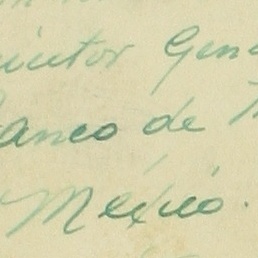 Director Gen
Banco de M
México.